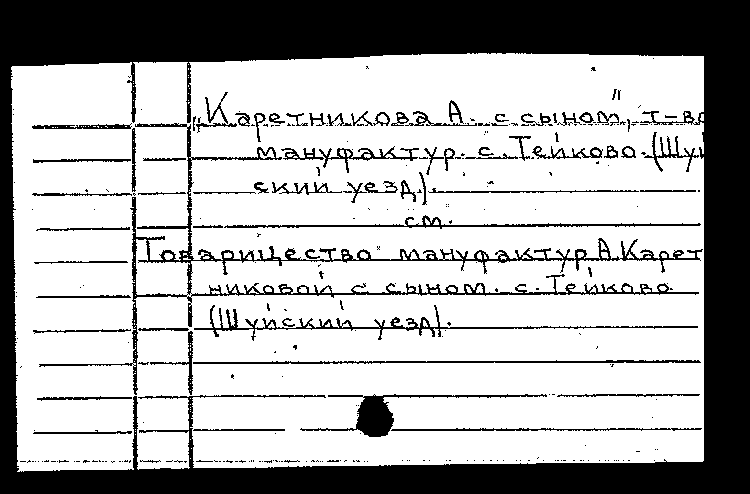 „Каретникова А. с сыном", т-во
мануфактур. с. Тейково. (Шуй
ский уезд).
см.
Товарищество мануфактур А. Карет
никовой с сыном. с. Тейково
(Шуйский уезд).